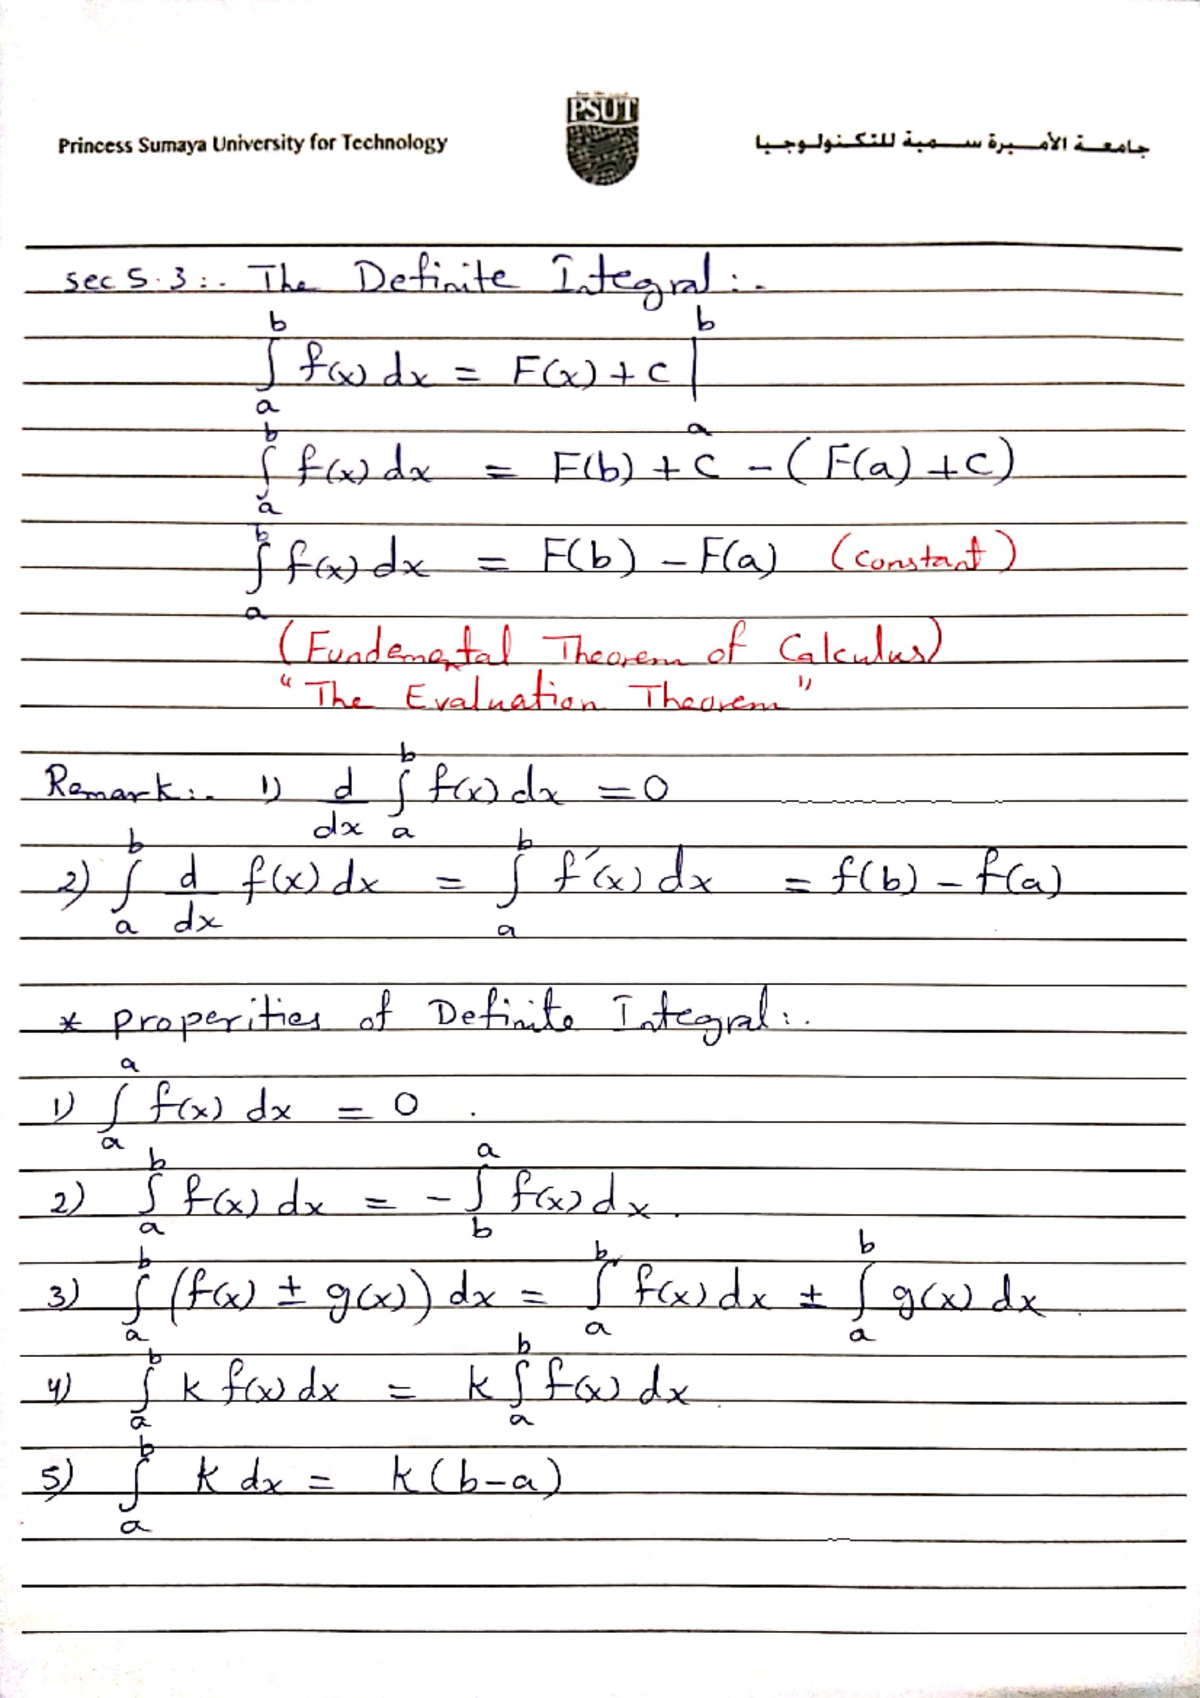 Princess Sumaya University for Technology
PSUT
جامعة الأميرة سمية للتكنولوجيا
sec 5.3:. The Definite Integral:.
∫_a^b f(x) dx = F(x) + c |_a^b
∫_a^b f(x) dx = F(b) + c - (F(a) + c)
∫_a^b f(x) dx = F(b) - F(a) (constant)
(Fundemental Theorem of Calculus)
"The Evaluation Theorem"
Remark:. 1) d/dx ∫_a^b f(x) dx = 0
2) ∫_a^b d/dx f(x) dx = ∫_a^b f′(x) dx = f(b) - f(a)
* properities of Definite Integral:.
1) ∫_a^a f(x) dx = 0 .
2) ∫_a^b f(x) dx = - ∫_b^a f(x) dx .
3) ∫_a^b (f(x) ± g(x)) dx = ∫_a^b f(x) dx ± ∫_a^b g(x) dx .
4) ∫_a^b k f(x) dx = k ∫_a^b f(x) dx .
5) ∫_a^b k dx = k(b-a)